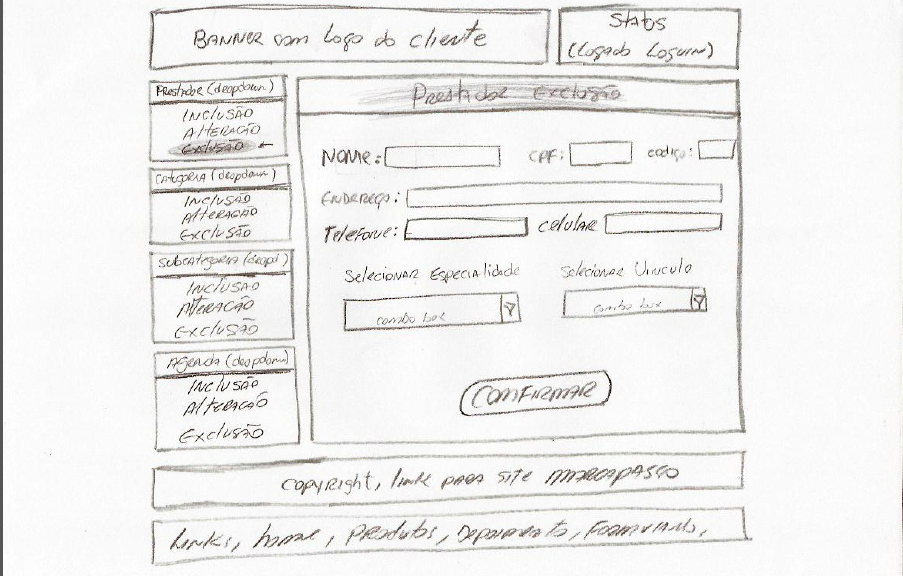 BANNER com Logo do cliente
Status
(Logado Loguin)
Prestador (dropdown)
INCLUSÃO
ALTERAÇÃO
EXCLUSÃO
CATEGORIA (dropdown)
INCLUSÃO
ALTERAÇÃO
EXCLUSÃO
SUBCATEGORIA (dropd)
INCLUSÃO
ALTERAÇÃO
EXCLUSÃO
AGENDA (dropdown)
INCLUSÃO
ALTERAÇÃO
EXCLUSÃO
Prestador Exclusão
NOME: CPF: codigo:
ENDEREÇO:
Telefone: celular
Selecionar Especialidade Selecionar Vinculo
combo box combo box
CONFIRMAR
copyright, link para site MARCAPASSO
Links, home, Produtos, Depoimento,